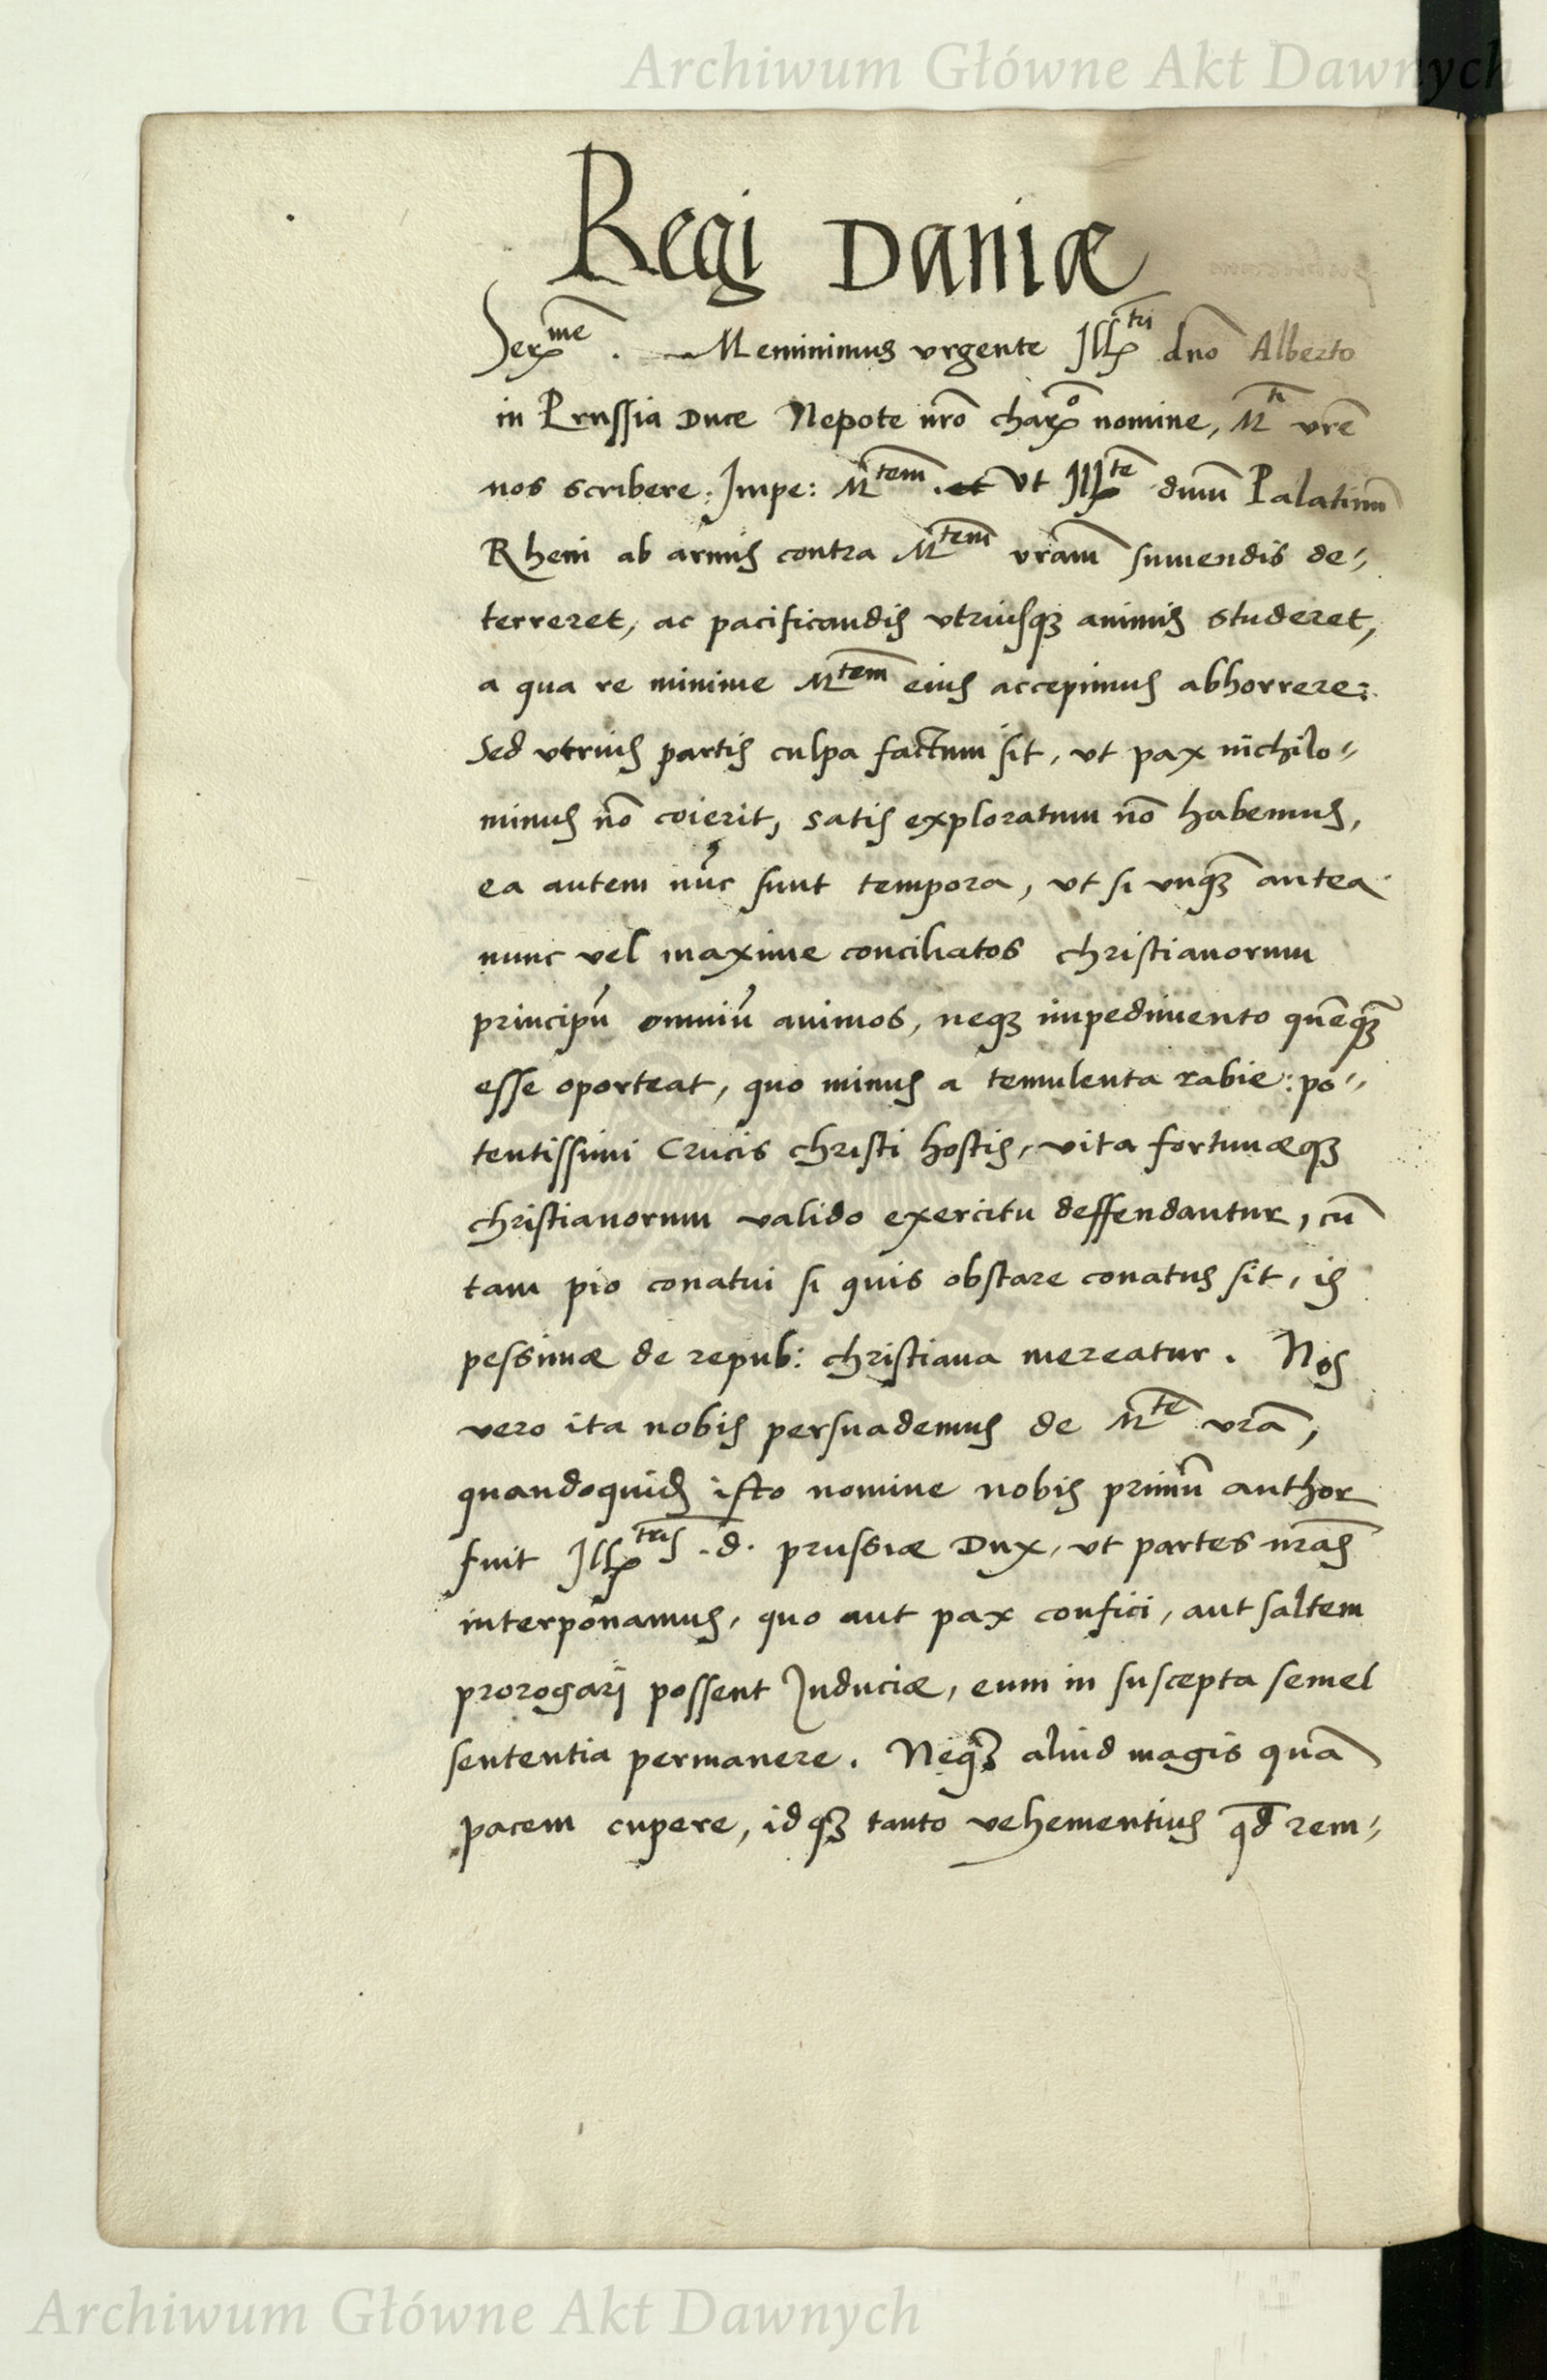 Archiwum Główne Akt Dawnych
Regi Daniæ
Serme. Meminimus vrgente Illtri dno Alberto
in Prussia Duce Nepote nro charo nomine, Mti vre
nos scribere. Impe: Mtem. et vt Illte dnum Palatinum
Rheni ab armis contra Mtem vram sumendis de-
terreret, ac pacificandis vtriusq3 animis studeret,
a qua re minime Mtem eius accepimus abhorrere:
Sed vtrius partis culpa factum sit, vt pax nichilo-
minus nō coierit, satis exploratum nō habemus,
ea autem nūc sunt tempora, vt si vnq3 antea
nunc vel maxime conciliatos christianorum
principū omniū animos, neq3 impedimento quēq3
esse oporteat, quo minus a temulenta rabie: po-
tentissimi Crucis christi hostis, vita fortunæq3
christianorum valido exercitu deffendantur, cū
tam pio conatui si quis obstare conatus sit, is
pessimæ de repub: christiana mereatur. Nos
vero ita nobis persuademus de Mte vrā,
quandoquid isto nomine nobis primū author
fuit Illtris .d. prussiæ Dux, vt partes nras
interponamus, quo aut pax confici, aut saltem
prorogarj possent Induciæ, eum in suscepta semel
sententia permanere. Neq3 aliud magis quā
pacem cupere, idq3 tanto vehementius qd rem-
Archiwum Główne Akt Dawnych